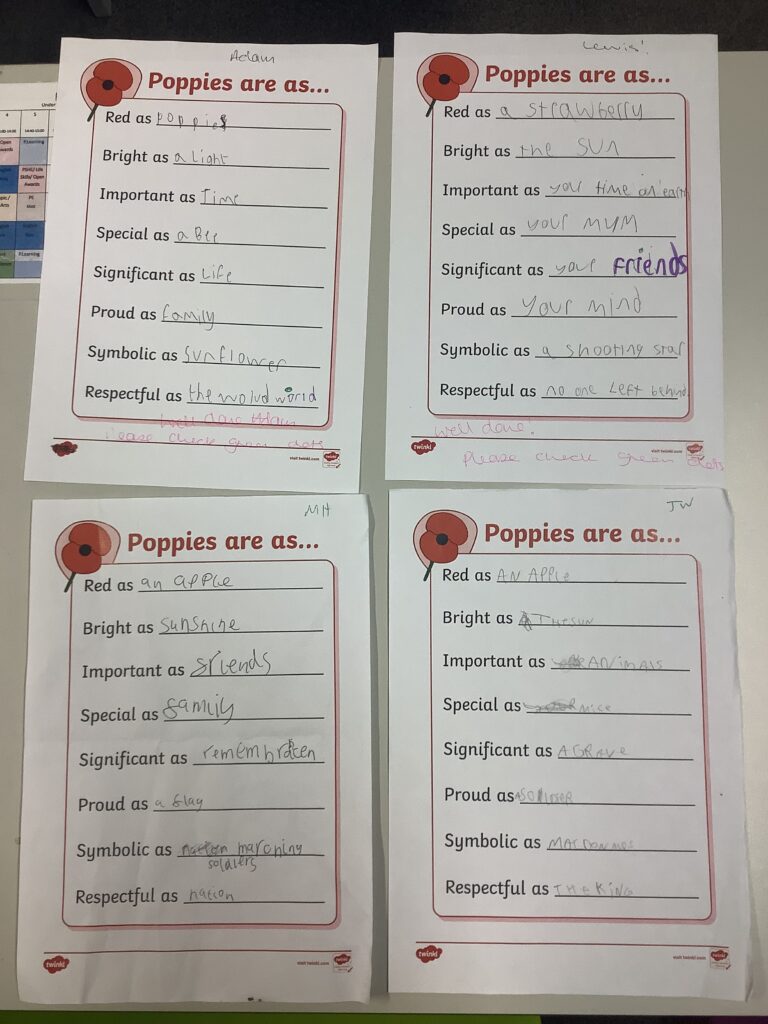 Adam
Poppies are as...
Red as poppies
Bright as a Light
Important as Time
Special as a Bee
Significant as Life
Proud as family
Symbolic as Sunflower
Respectful as the world world
well done Adam
Please check green dots
twinkl
visit twinkl.com
Lewis
Poppies are as...
Red as a strawberry
Bright as the sun
Important as your time on earth
Special as your mum
Significant as your Friends
Proud as your mind
Symbolic as a shooting star
Respectful as no one Left behind
well done.
Please check green dots
twinkl
MH
Poppies are as...
Red as an apple
Bright as sunshine
Important as friends
Special as family
Significant as
Proud as a flag
Symbolic as marching
soldiers
Respectful as nation
twinkl
visit twinkl.com
JW
Poppies are as...
Red as AN APPle
Bright as THE SUN
Important as ANiMALS
Special as Mice
Significant as A GRAVE
Proud as
Symbolic as
Respectful as THE KING
twinkl
visit twinkl.com